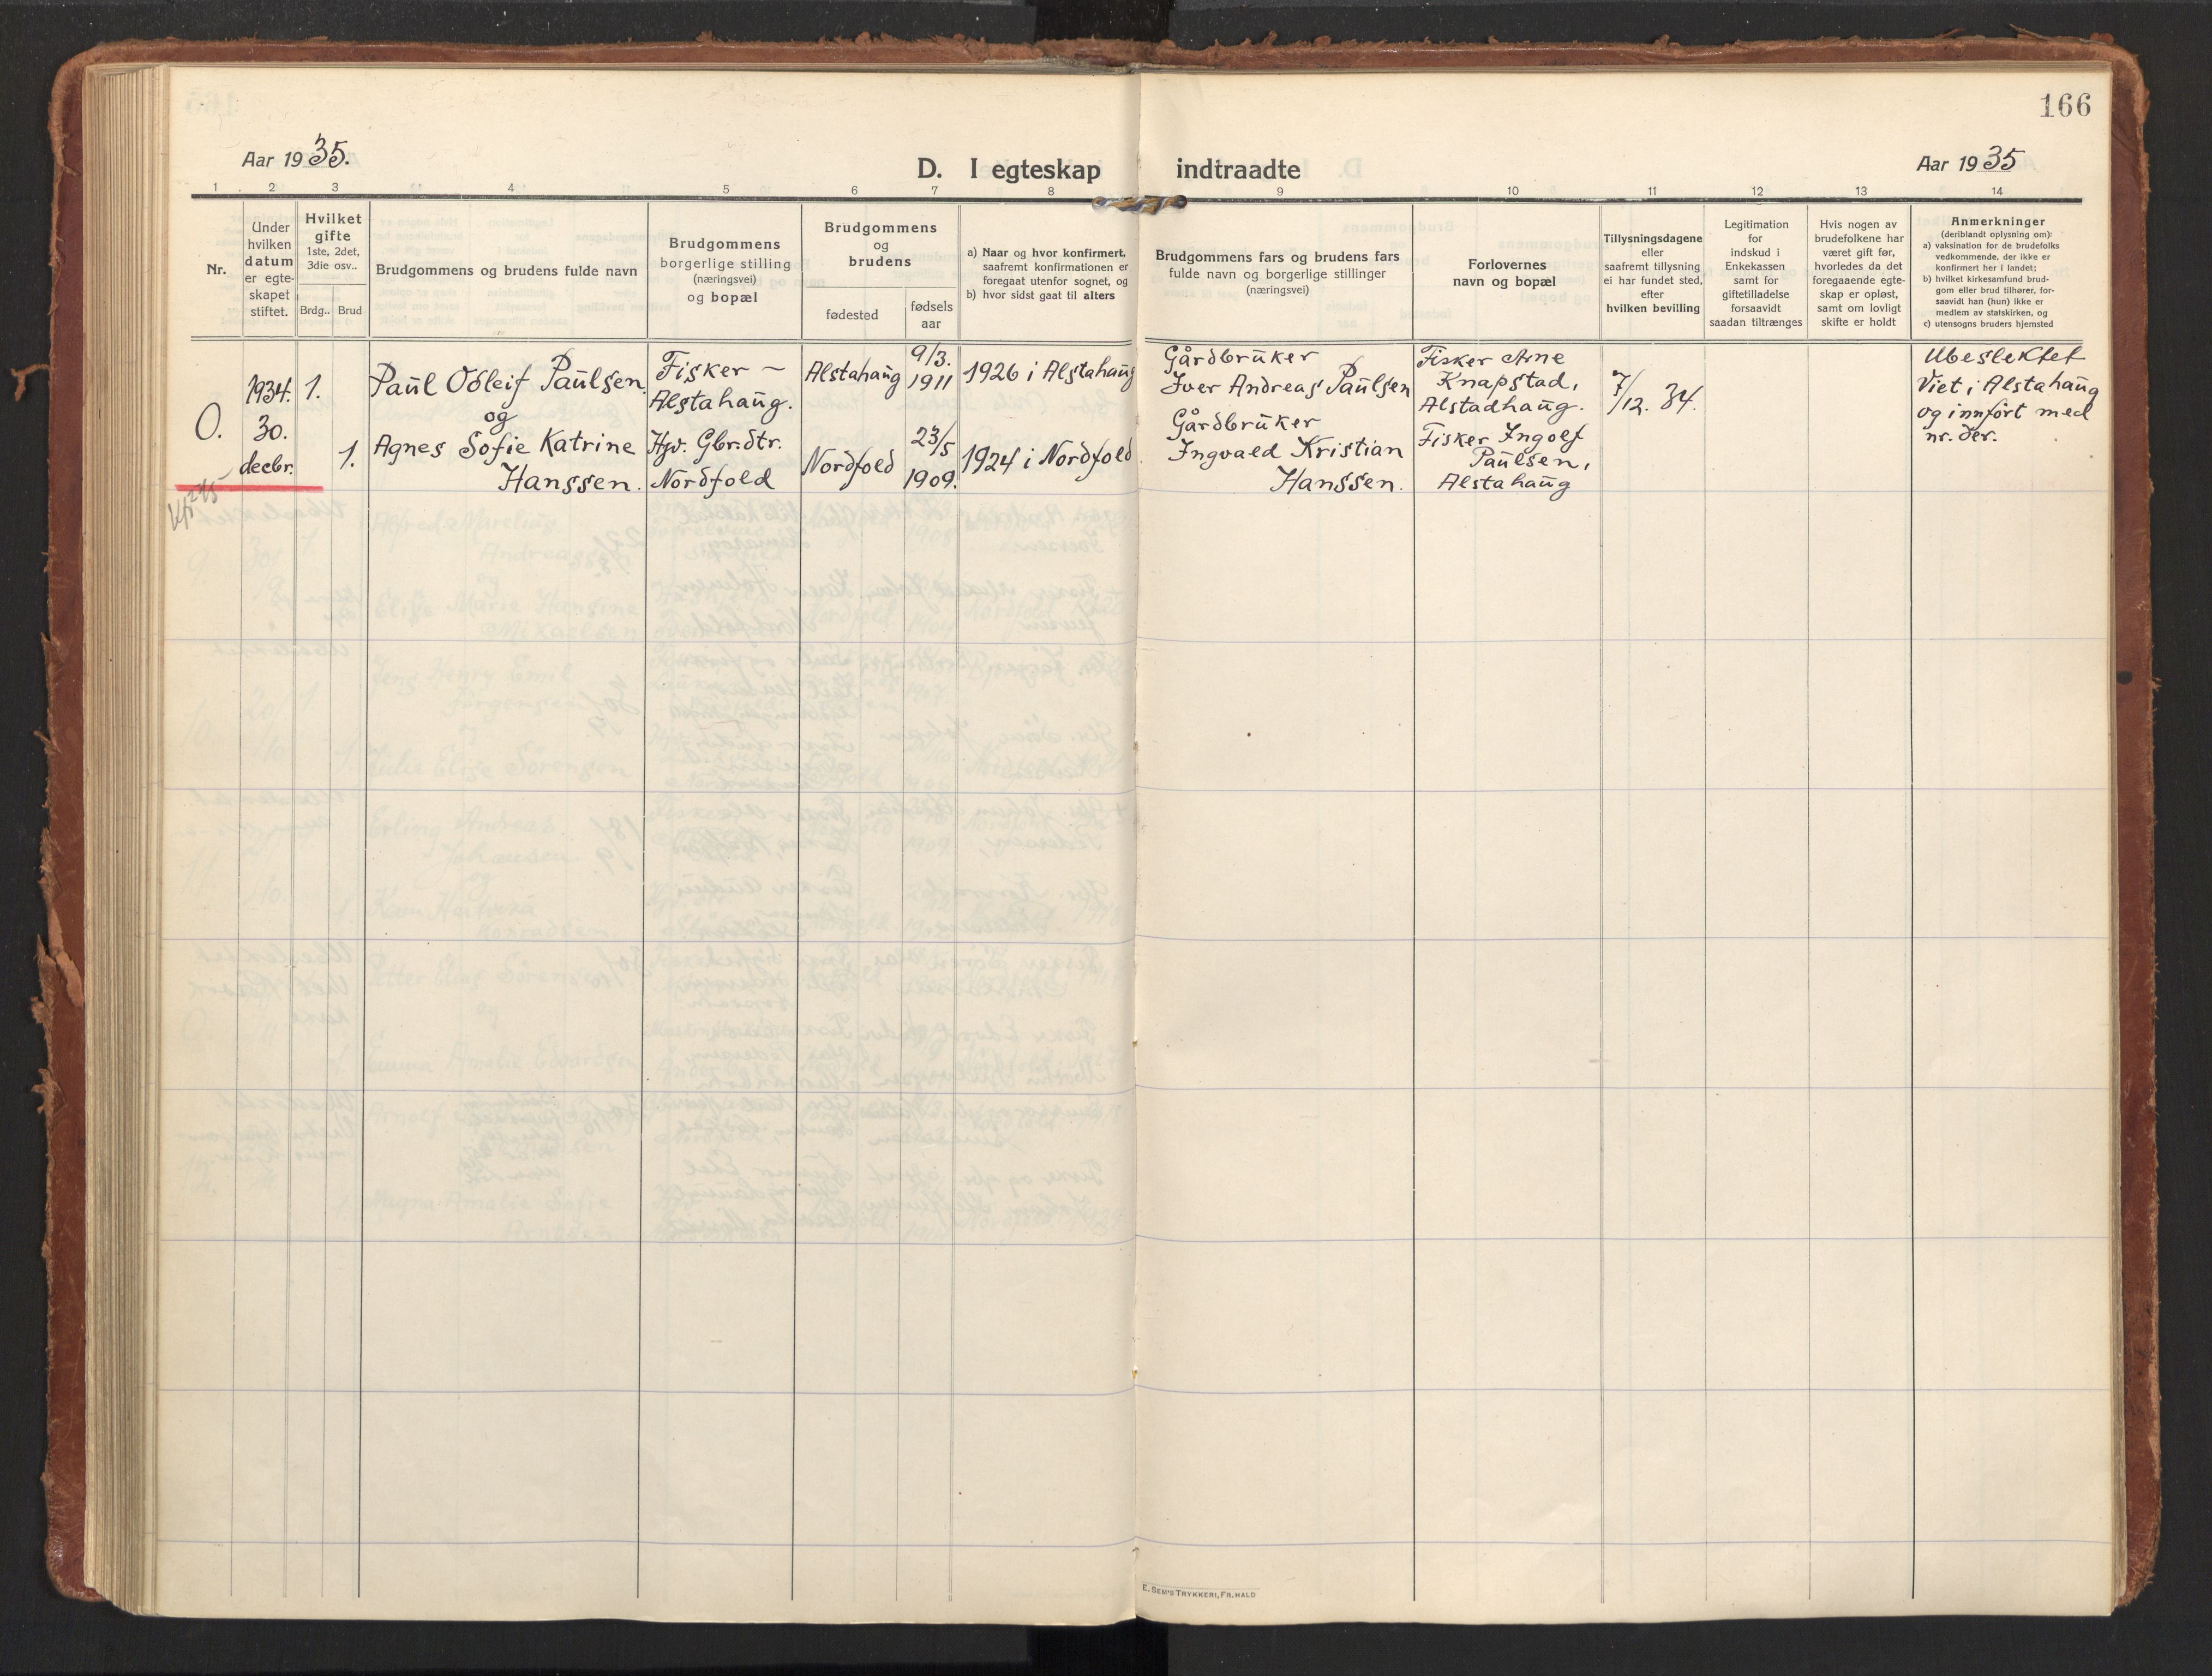 166
Aar 1935.
D. I egteskap indtraadte
Aar 1935
1 2 3 4 5 6 7 8 9 10 11 12 13 14
Nr.
Under
hvilken
datum
er egte-
skapet
stiftet.
Hvilket
gifte
1ste, 2det,
3die osv..
Brdg.. Brud
Brudgommens og brudens fulde navn
Brudgommens
borgerlige stilling
(næringsvei)
og bopæl
Brudgommens
og
brudens
fødested
fødsels
aar
a) Naar og hvor konfirmert,
saafremt konfirmationen er
foregaat utenfor sognet, og
b) hvor sidst gaat til alters
Brudgommens fars og brudens fars
fulde navn og borgerlige stillinger
(næringsvei)
Forlovernes
navn og bopæl
Tillysningsdagene
eller
saafremt tillysning
ei har fundet sted,
efter
hvilken bevilling
Legitimation
for
indskud i
Enkekassen
samt for
giftetilladelse
forsaavidt
saadan tiltrænges
Hvis nogen av
brudefolkene har
været gift før,
hvorledes da det
foregaaende egte-
skap er opløst,
samt om lovligt
skifte er holdt
Anmerkninger
(deriblandt oplysning om):
a) vaksination for de brudefolks
vedkommende, der ikke er
konfirmert her i landet;
b) hvilket kirkesamfund brud-
gom eller brud tilhører, for-
saavidt han (hun) ikke er
medlem av statskirken, og
c) utensogns bruders hjemsted
O.
1934.
30.
decbr.
1.
1.
Paul Odleif Paulsen
og
Agnes Sofie Katrine
Hanssen.
Fisker –
Alstahaug.
Hjv. Gbr.dtr.
Nordfold
Alstahaug
Nordfold
9/3.
1911
23/5
1909.
1926 i Alstahaug
1924 i Nordfold
Gårdbruker
Iver Andreas Paulsen
Gårdbruker
Ingvald Kristian
Hanssen.
Fisker Arne
Knapstad,
Alstadhaug.
Fisker Ingolf
Paulsen,
Alstahaug
7/12. 34.
Ubeslektet
Viet i Alstahaug
og innført med
nr. der.
E. SEM'S TRYKKERI, FR.HALD